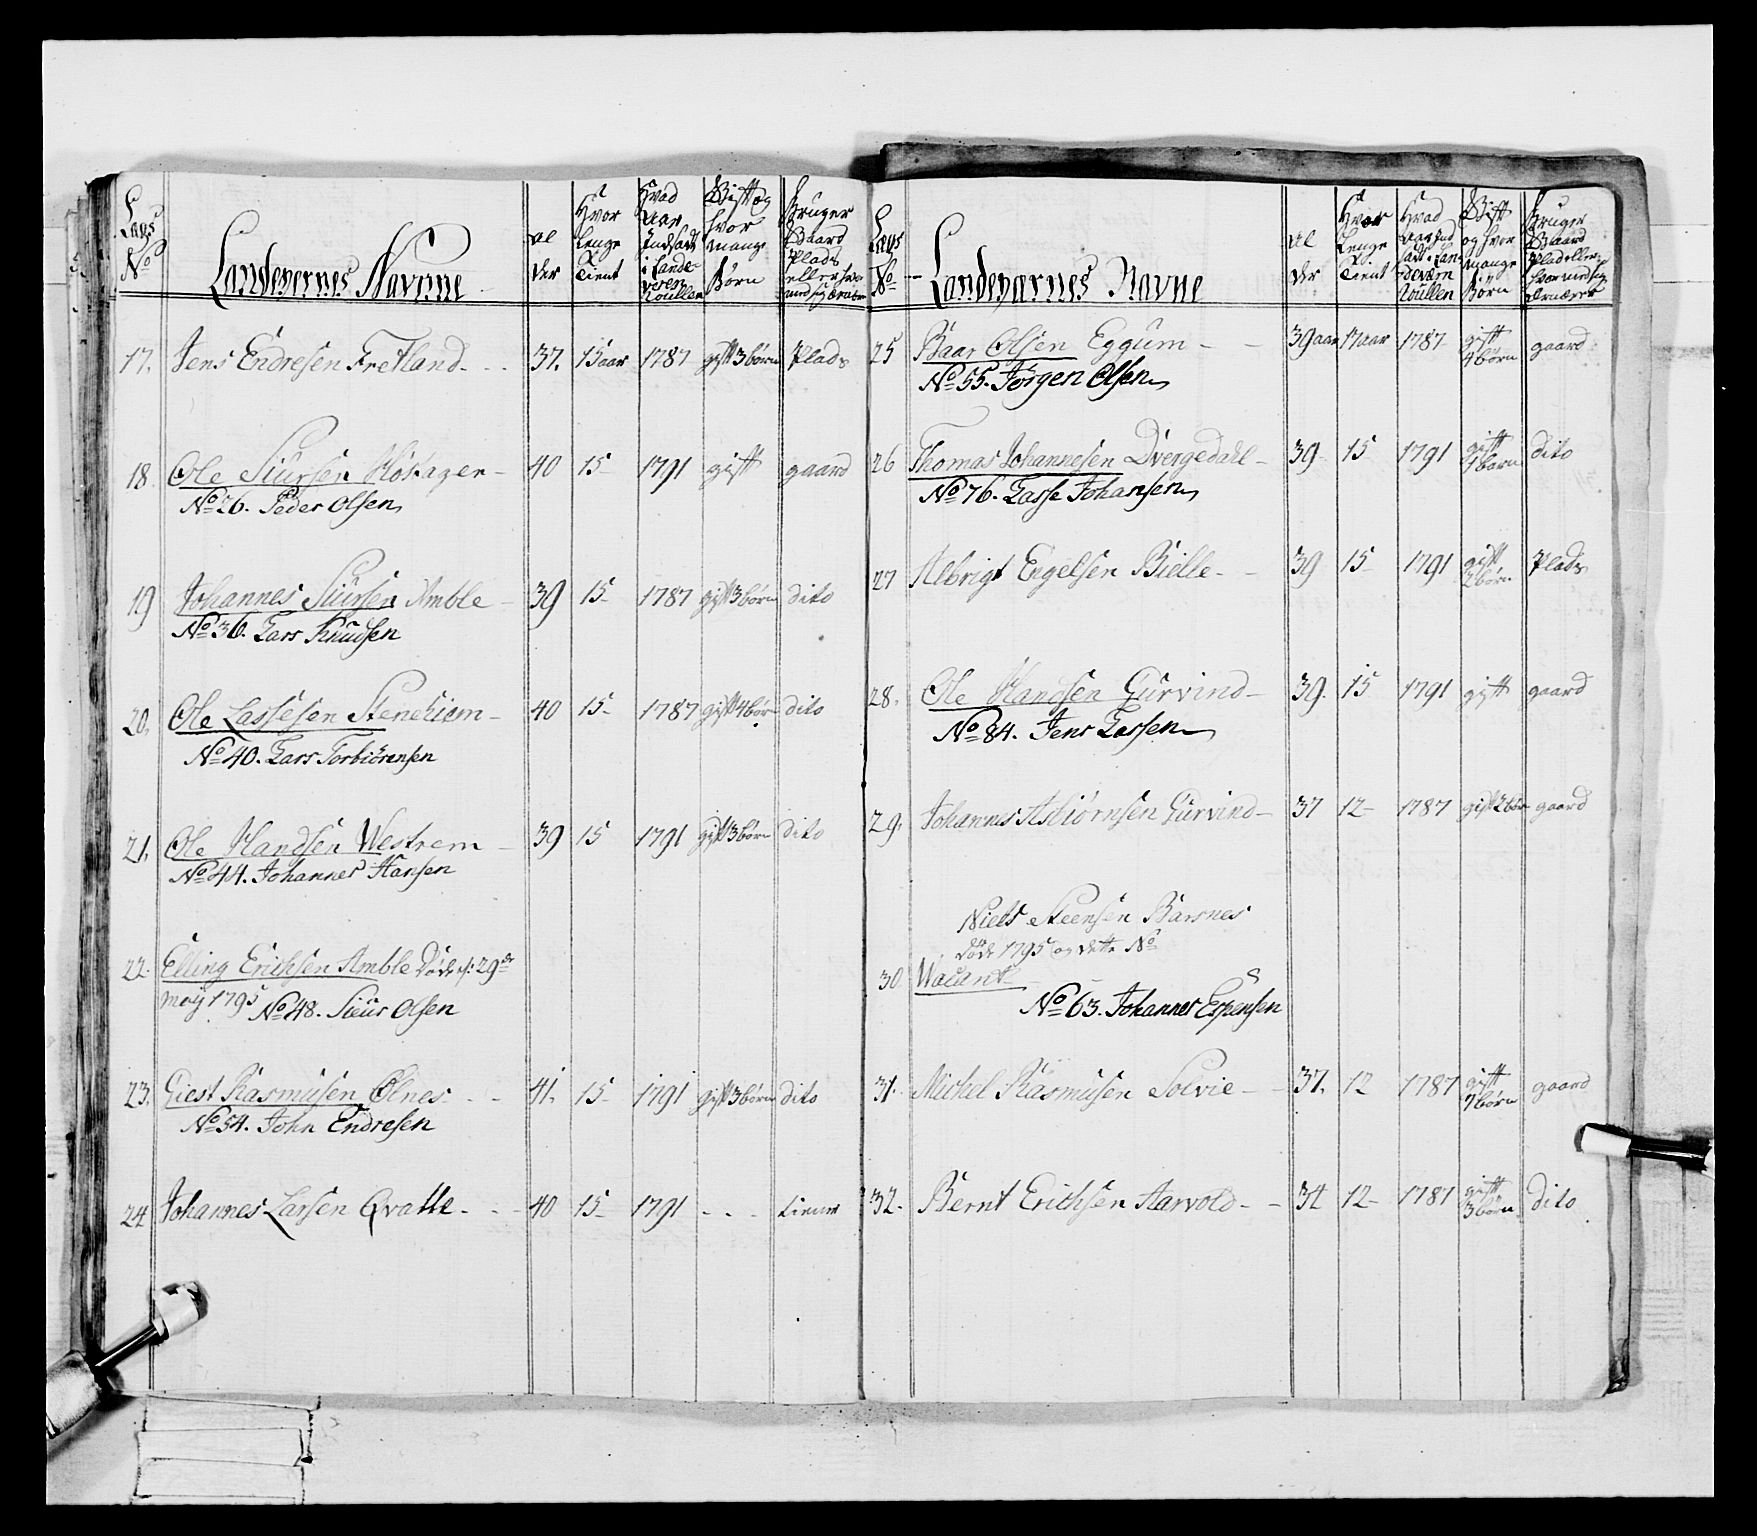 Laugs No
Landeværnes Navnne
Al der
Hvor Lenge Tient
Hvad Aar Indsadt i Lande Veren Roullen
Gift og hvor mange Børn
Bruger Gaard Plads eller hvor med sig Ernærer
17. Jens Endresen Fretland - - - 37. 15 aar 1787 gift 3 børn Plads
18. Ole Siursen Höskager - 40 15 - 1791 gift gaard
No 26. Peder Olsen
19 Johannes Siursen Amble - 39 15 - 1787 gift 3 børn dito
No 36. Lars Knudsen
20. Ole Lassesen Stenehiem - 40 15 - 1787 gift 4 børn dito
No 40. Lars Torbiörensen
21. Ole Handsen Westrem - 39 15 1791 gift 3 børn dito
No 44. Johannes Hansen
22. Elling Erichsen Amble Døde d: 29de
May 1795 No 48. Siur Olsen
23. Giest Rasmusen Ölnes - - - 41. 15 - 1791 gift 3 børn dito
No 54. John Endresen
24 Johannes Larsen Qvatte - - - 40 15 - 1791 - - - tiener
Laugs No
Landeværnes Navne
Al der
Hvor Lenge Tient
Hvad Aar Ind sadt i Lan deværn Roullen
Gift og hvor mange Børn
Bruger Gaard Plad eller hvor med sig Ernærer
25 Baar Olsen Eggum - - 39 aar 17 aar 1787 gift 4 børn gaard
No 55. Jörgen Olsen
26 Thomas Johannesen Dvergedahl - 39 15 1791 gift 1 barn dito
No 76. Lasse Johansen
27 Albrigt Engelsen Bielle - - 39 15 - 1791 gift 2 børn Plads
28. Ole Handsen Gurvind - 39. 15 1791 gift gaard
No 84. Jens Lassen
29. Johannes Asbiörnsen Gurvind - 37 12 - 1787 gift 2 bør gaard
Niels Steensen Barsnes
döde 1795 og dette No
30. Wacant
No 63. Johannes Espensen
31. Michel Rasmusen Solvie - - 37. 12 1787 gift 7 børn gaard
32. Bernt Erichsen Aarvold - - 34 12 - 1787 gift 3 børn dito